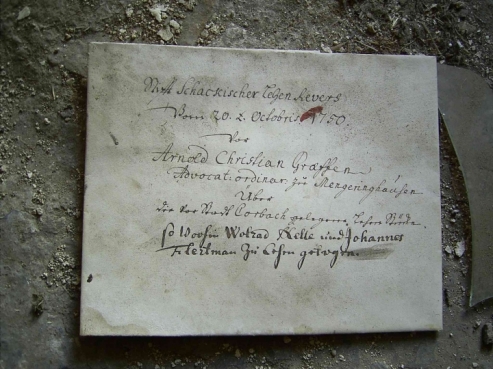 Schackischer Lehen Revers
Vom 20. 2. Octobris 1750.
Vor
Arnold Christian Græffen
Advocat: ordinar: zu Mengeringhausen
Über
die vor Stadt Corbach gelegene
so Wolrad Kelle und Johannes
zu Lehen getragen.